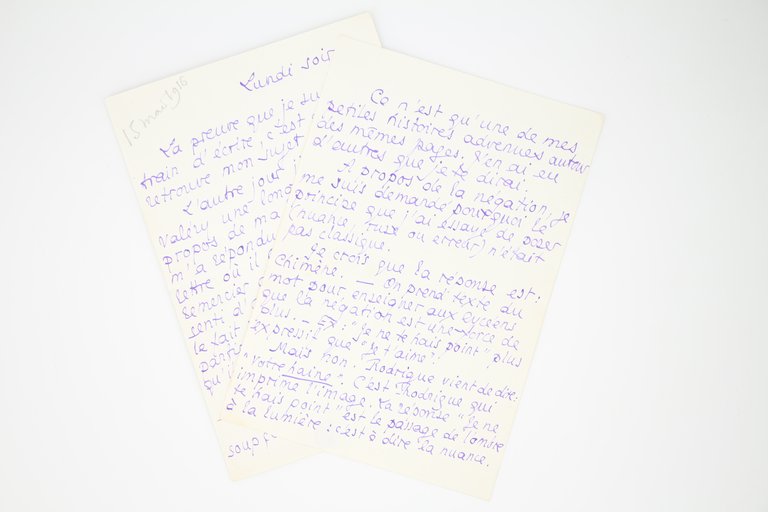 15 mai 1916
Lundi soir
La preuve que je su
train d'écrire c'est
retrouve mon sujet
L'autre jour j
Valéry une long
propos de ma
m'a répondu
lettre où il
remercier
senti d'
le fait
qu'i
soup
Ce n'est qu'une de mes
petites histoires advenues autour
des mêmes pages. J'en ai eu
d'autres que je te dirai.
A propos de la négation, je
me suis demandé pourquoi le
principe que j'ai essayé de poser
(nuance, ruse ou erreur) n'était
pas classique.
Je crois que la réponse est :
Chimène. — On prend texte du
mot pour enseigner aux lycéens
que la négation est une force de
plus. — Ex : "Je ne te hais point" plus
expressif que "Je t'aime".
Mais non. Rodrigue vient de dire :
"Votre haine". C'est Rodrigue qui
imprime l'image. La réponse "Je ne
te hais point" est le passage de l'ombre
à la lumière : c'est à dire la nuance.